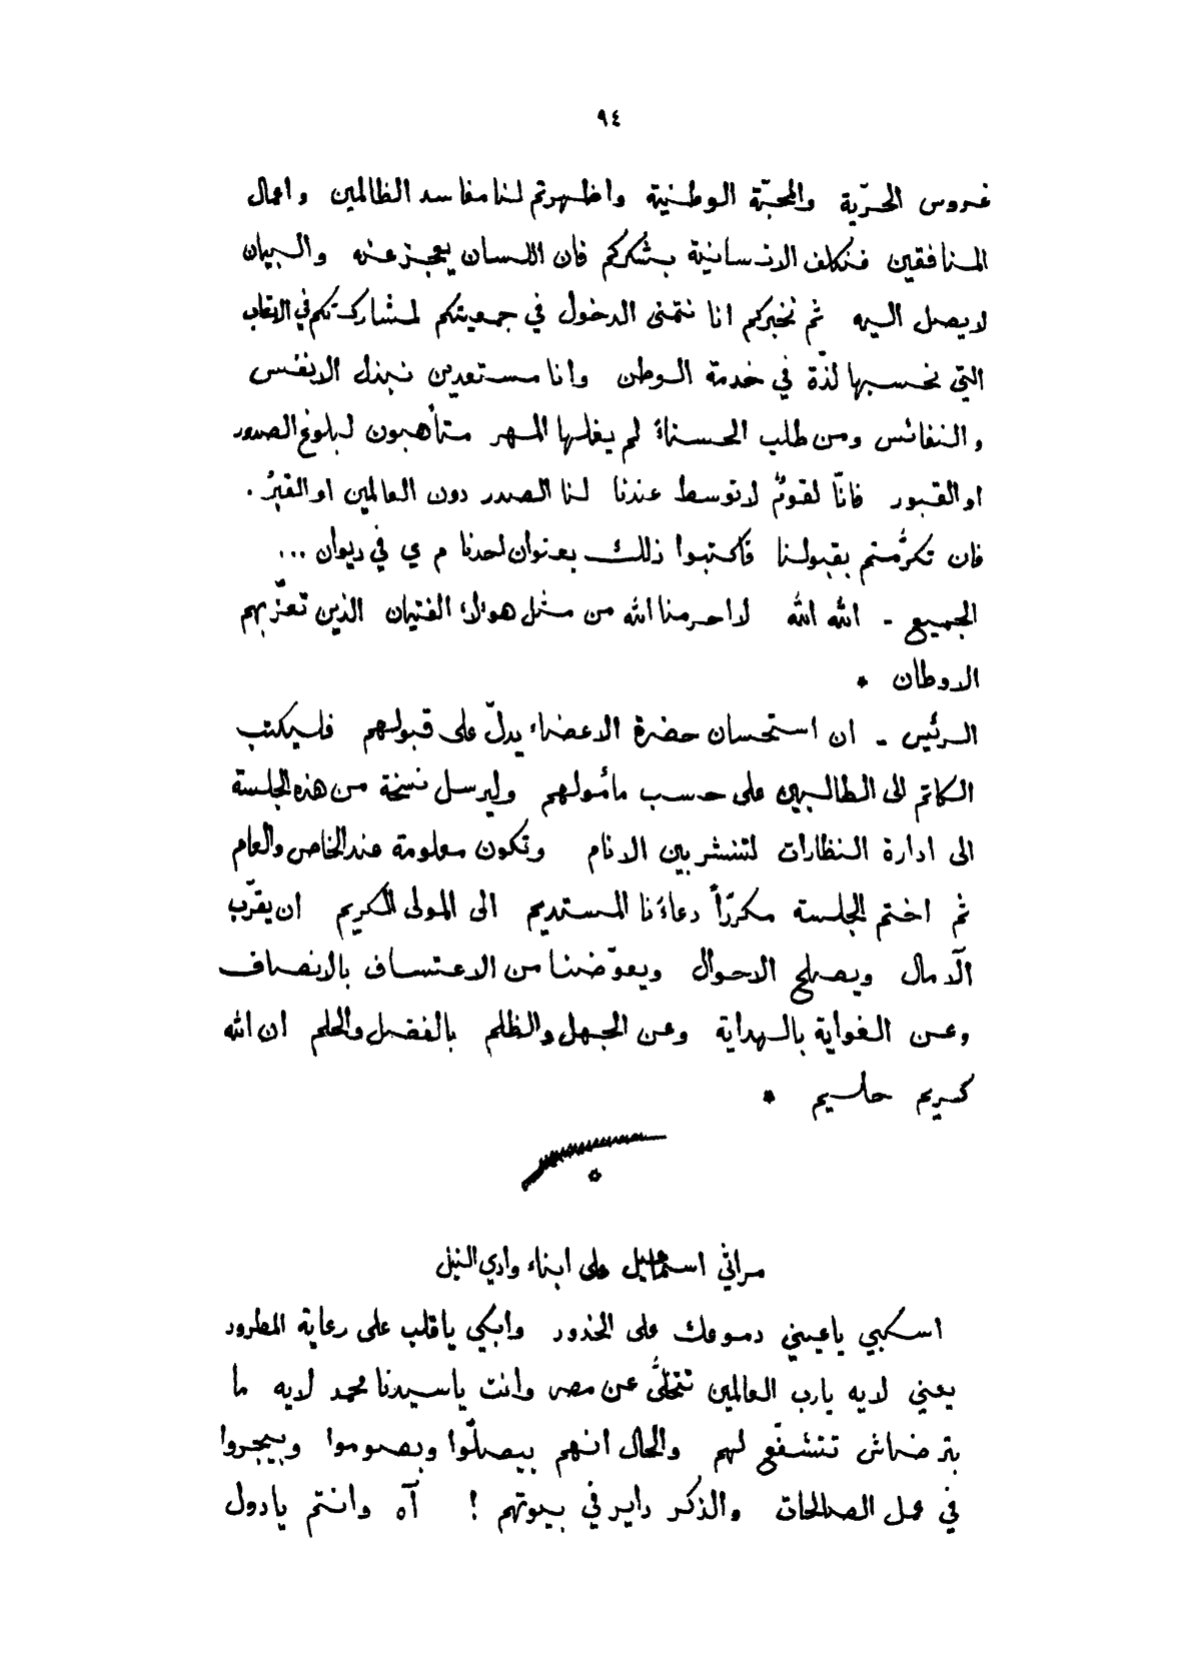 ٩٤
غروس الحرّية والمحبّة الوطنية واظهرتم لنا مفاسد الظالمين واعمال
المنافقين فنكلف الانسانية بشكركم فان اللسان يعجز عنه والبيان
لا يصل اليه ثم نخبركم انا نتمنى الدخول في جمعيتكم لمشاركتكم في الاتعاب
التي نحسبها لذّة في خدمة الوطن وانا مستعدين نبذل الانفس
والنفائس ومن طلب الحسناءَ لم يغلها المهر متأهبون لبلوغ الصدور
او القبور فانّا لقومٌ لا توسط عندنا لنا الصدر دون العالمين او القبرُ .
فان تكرَّمتم بقبولنا فاكتبوا ذلك بعنوان احدنا م ي في ديوان ...
الجميع - الله الله لا احرمنا الله من مثل هولاءِ الفتيان الذين تعزّ بهم
الاوطان *
الرئيس - ان استحسان حضرة الاعضاء يدلّ على قبولهم فليكتب
الكاتم الى الطالبين على حسب مأمولهم وليرسل نسخة من هذه الجلسة
الى ادارة النظارات لتنشر بين الانام وتكون معلومة عند الخاص والعام
ثم اختم الجلسة مكررّاً دعاءَنا المستديم الى المولى الكريم ان يقرّب
الآمال ويصلح الاحوال ويعوّضنا من الاعتساف بالانصاف
وعن الغواية بالهداية وعن الجهل والظلم بالفضل والحلم ان الله
كريم حليم *
مراثي اسماعيل على ابناء وادي النيل
اسكبي يا عيني دموعك على الخدور وابكي يا قلب على رعاية المطرود
يعني لايه يا رب العالمين تتخلَّى عن مصر وانت يا سيدنا محمد لايه ما
بترضاش تتشفّع لهم والحال انهم بيصلّوا وبصوموا وبيجروا
في عمل الصالحات والذكر داير في بيوتهم ! آه وانتم يا دول